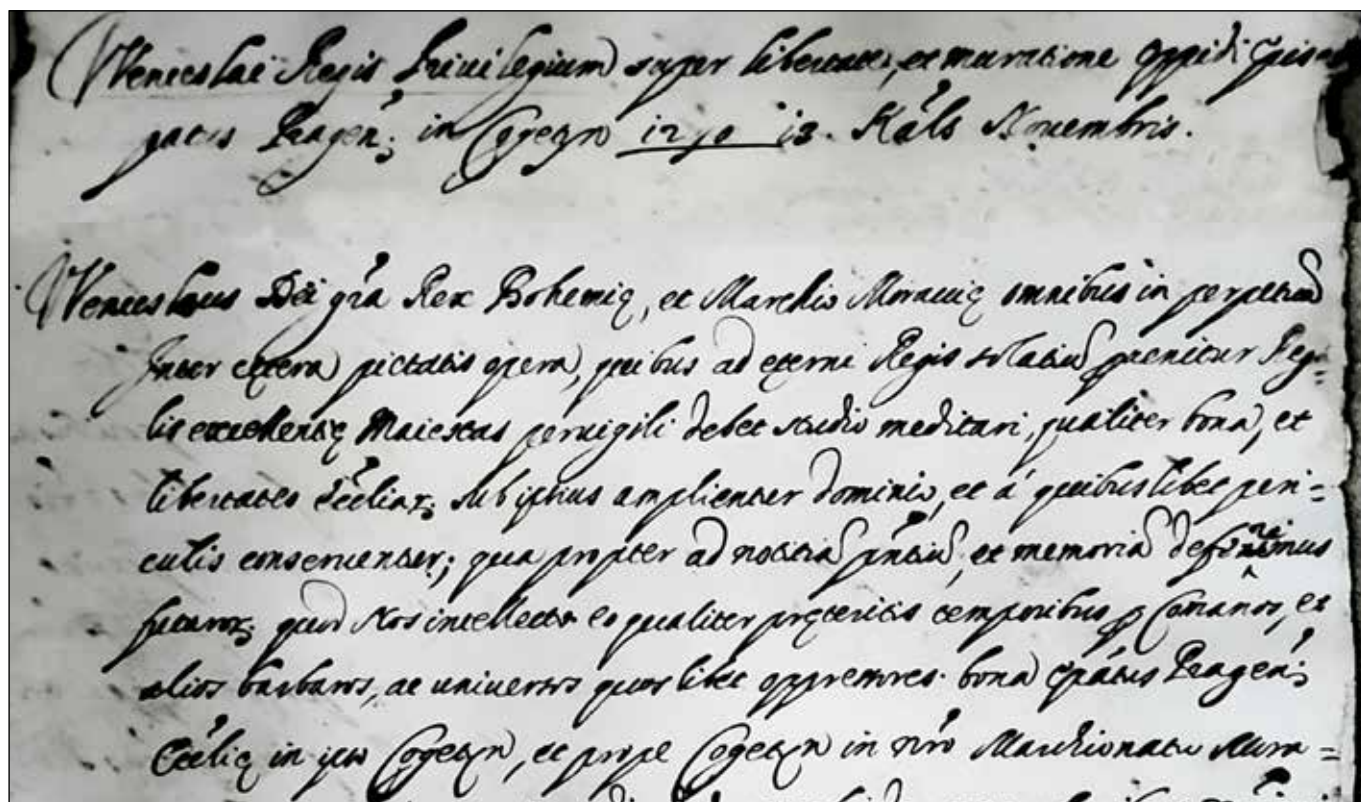 Wenceslai Regis Priuilegium super libertate, et muratione oppidi Episco
patus Pragen; in Cogetyn 1290 13. Kal̄s Nouembris.
Wenceslaus Dei gr̄a Rex Bohemię, et Marchio Morauię omnibus in perpetuū
Inter cętera pietatis opera, quibus ad ęterni Regis solatiū peruenitur Rega=
lis excellentię Maiestas peruigili debet studio meditari, qualiter bona, et
libertates Eccliar; sub ipsius amplientur dominio, et á quibuslibet peri=
culis conseruentur; qua propter ad notitiā pn̄tiū, et memoriā
futuror; quod Nos intellecto eo qualiter pręteritis temporibus ꝑ Comanos, et
alios barbaros, ac universos quoslibet oppressores bona Ep̄atus Pragen;
Eccl̄ię in ipso Cogetyn, et prope Cogetyn in nr̄o Marchionatu Mora=